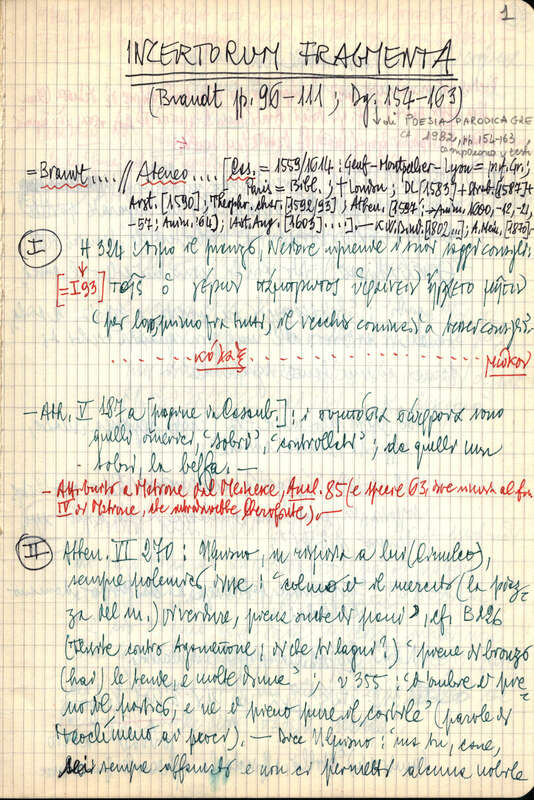 1
INCERTORUM FRAGMENTA
(Brandt pp. 96-111; Dg. 154-163)
↓ di POESIA PARODICA GRE
CA 1982, pp. 154-163,
= Brandt.... // Ateneo.... [Cas. = 1559/1614: Genf-Montpellier-Lyon =
Paris = Bibl.; † London; DL [1583] + Strab. [1587] +
Arst. [1590]; Theophr. char. [1592/93]; Athen. [1597; → Anim. 1600, -12, -21,
-57; Anim. '64]; Hist. Aug. [1603]....] — K.W. Dind. [1802...]; A. Mein. [1870]-
I H 324 dopo il pranzo, Nestore riprende i suoi saggi consigli:
[= I 93] τοῖς ὁ γέρων πάμπρωτος ὑφαίνειν ἤρχετο μῆτιν
"per loro, primo fra tutti, il vecchio cominciò a tesser consigli"
κόλαξ μῶκον
- Ath. V 187 a [pagine di Casaub.]: i συμπόσια σώφρονα sono
quelli omerici, "sobri", "controllati"; da quelli non
sobri, la beffa. —
- Attribuito a Matrone dal Meineke, Anal. 85 (e specie 63, dove
IV di Matrone, che Senofonte). —
II Athen. VII 270: Ulpiano, in risposta a lui (Cinulco),
sempre polemico, disse: "colmo è il mercato (la piaz-
za del m.) di verdure, piena anche di pani", cf. B 226
(Tersite contro Agamennone: di che ti lagni?) "piene di bronzo
(hai) le tende, e molte donne"; υ 355: "d'ombre è pie-
no il portico, e ne è pieno pure il cortile" (parole di
Teoclimeno ai proci). — Dice Ulpiano: "ma tu, cane,
sei sempre affamato e non ci permetti alcuna nobile